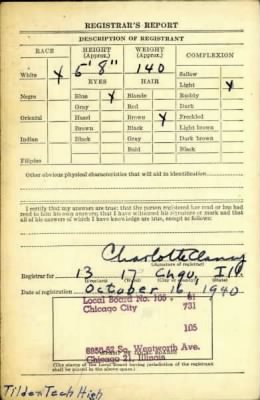 REGISTRAR'S REPORT
DESCRIPTION OF REGISTRANT
RACE HEIGHT (Approx.) WEIGHT (Approx.) COMPLEXION
White X 5' 8" 140 Sallow
EYES HAIR Light X
Negro Blue X Blonde Ruddy
Gray Red Dark
Oriental Hazel Brown X Freckled
Brown Black Light brown
Indian Black Gray Dark brown
Bald Black
Filipino
Other obvious physical characteristics that will aid in identification
I certify that my answers are true; that the person registered has read or has had
read to him his own answers; that I have witnessed his signature or mark and that
all of his answers of which I have knowledge are true, except as follows:
Charlotte Clancy
(Signature of registrar)
Registrar for 13 17 Chgo, Ill.
(Precinct) (Ward) (City or county) (State)
Date of registration October 16, 1940
Local Board No. 105 61
Chicago City 731
105
6950-52 So. Wentworth Ave.
Chicago 21, Illinois
(The stamp of the Local Board having jurisdiction of the registrant
shall be placed in the above space.)
Tilden Tech High